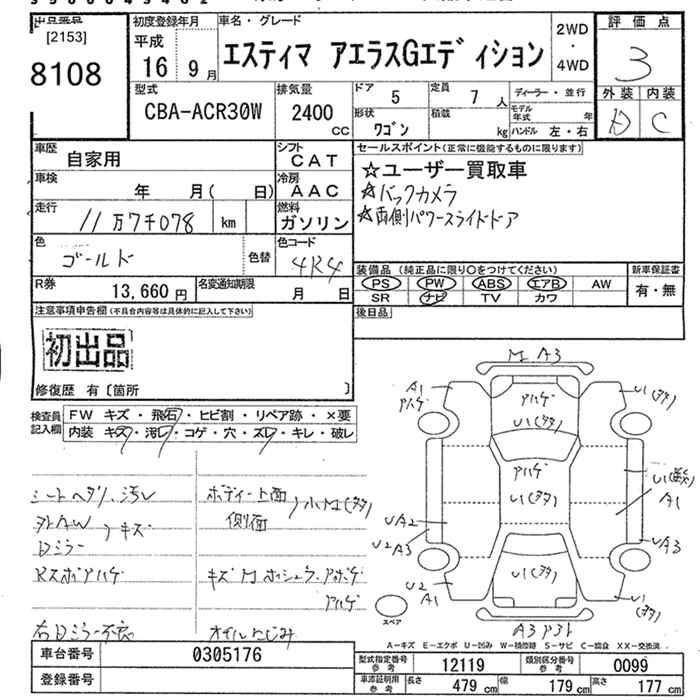 [2153]
8108
初度登録年月
平成
16 9 月
車名・グレード
エスティマ アエラスGエディション
2WD
・
4WD
評価点
3
型式
CBA-ACR30W
排気量
2400
CC
ドア 5
定員 7 人
形状
ワゴン
積載 kg
ディーラー・並行
モデル年式 年
ハンドル 左・右
外装 内装
D C
車歴 自家用
シフト CAT
車検 年 月( 日)
冷房 AAC
走行 11万7千078 km
燃料 ガソリン
色 ゴールド
色替
色コード 4R4
R券 13,660 円
名変通知期限 月 日
セールスポイント(正常に機能するものに限ります)
☆ユーザー買取車
☆バックカメラ
☆両側パワースライドドア
装備品 (純正品に限り○をつけてください)
PS PW ABS エアB AW
SR ナビ TV カワ
新車保証書
有・無
後日品
注意事項申告欄(不具合内容等は具体的に記入して下さい)
初出品
修復歴 有〔箇所 〕
検査員記入欄
FW キズ・飛石・ヒビ割・リペア跡・×要
内装 キズ・汚レ・コゲ・穴・スレ・キレ・破レ
シートヘタリ、汚レ
外AW
Dミラー
キズ
右Dミラー不良
ボディー上面
側面
小凹(多)
オイルにじみ
M A3
A1
アハゲ
アハゲ
U1(多)
U1(多)
アハゲ
U1(多)
A1
UA2
U2A3
UA3
U2
A1
U1(多)
U1(多)
スペア
A-キズ E-エクボ U-凹み W-補修跡 S-サビ C-腐食 XX-交換済
車台番号 0305176
登録番号
型式指定番号 参考 12119
類別区分番号 参考 0099
車検証明用 参考 長さ 479 cm 幅 179 cm 高さ 177 cm